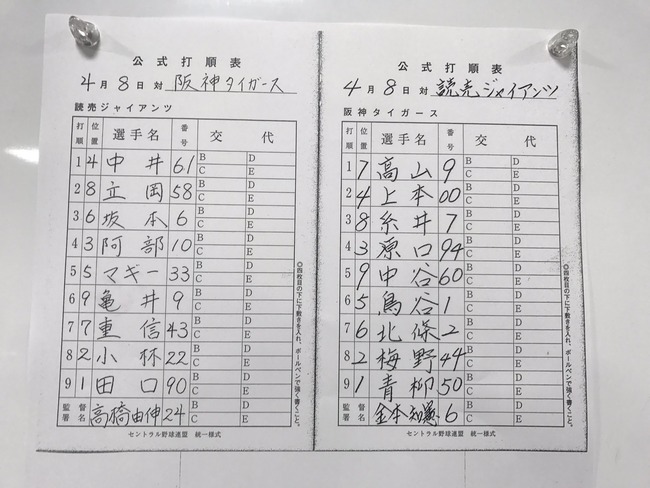 公式打順表
4月8日対 阪神タイガース
読売ジャイアンツ
打順 位置 選手名 番号 交代
1 4 中井 61 B D C E
2 8 立岡 58 B D C E
3 6 坂本 6 B D C E
4 3 阿部 10 B D C E
5 5 マギー 33 B D C E
6 9 亀井 9 B D C E
7 7 重信 43 B D C E
8 2 小林 22 B D C E
9 1 田口 90 B D C E
監督署名 高橋由伸 24
◎四枚目の下に下敷きを入れ、ボールペンで強く書くこと。
セントラル野球連盟 統一様式
公式打順表
4月8日対 読売ジャイアンツ
阪神タイガース
打順 位置 選手名 番号 交代
1 7 高山 9 B D C E
2 4 上本 00 B D C E
3 8 糸井 7 B D C E
4 3 原口 94 B D C E
5 9 中谷 60 B D C E
6 5 鳥谷 1 B D C E
7 6 北條 2 B D C E
8 2 梅野 44 B D C E
9 1 青柳 50 B D C E
監督署名 金本知憲 6
◎四枚目の下に下敷きを入れ、ボールペンで強く書くこと。
セントラル野球連盟 統一様式